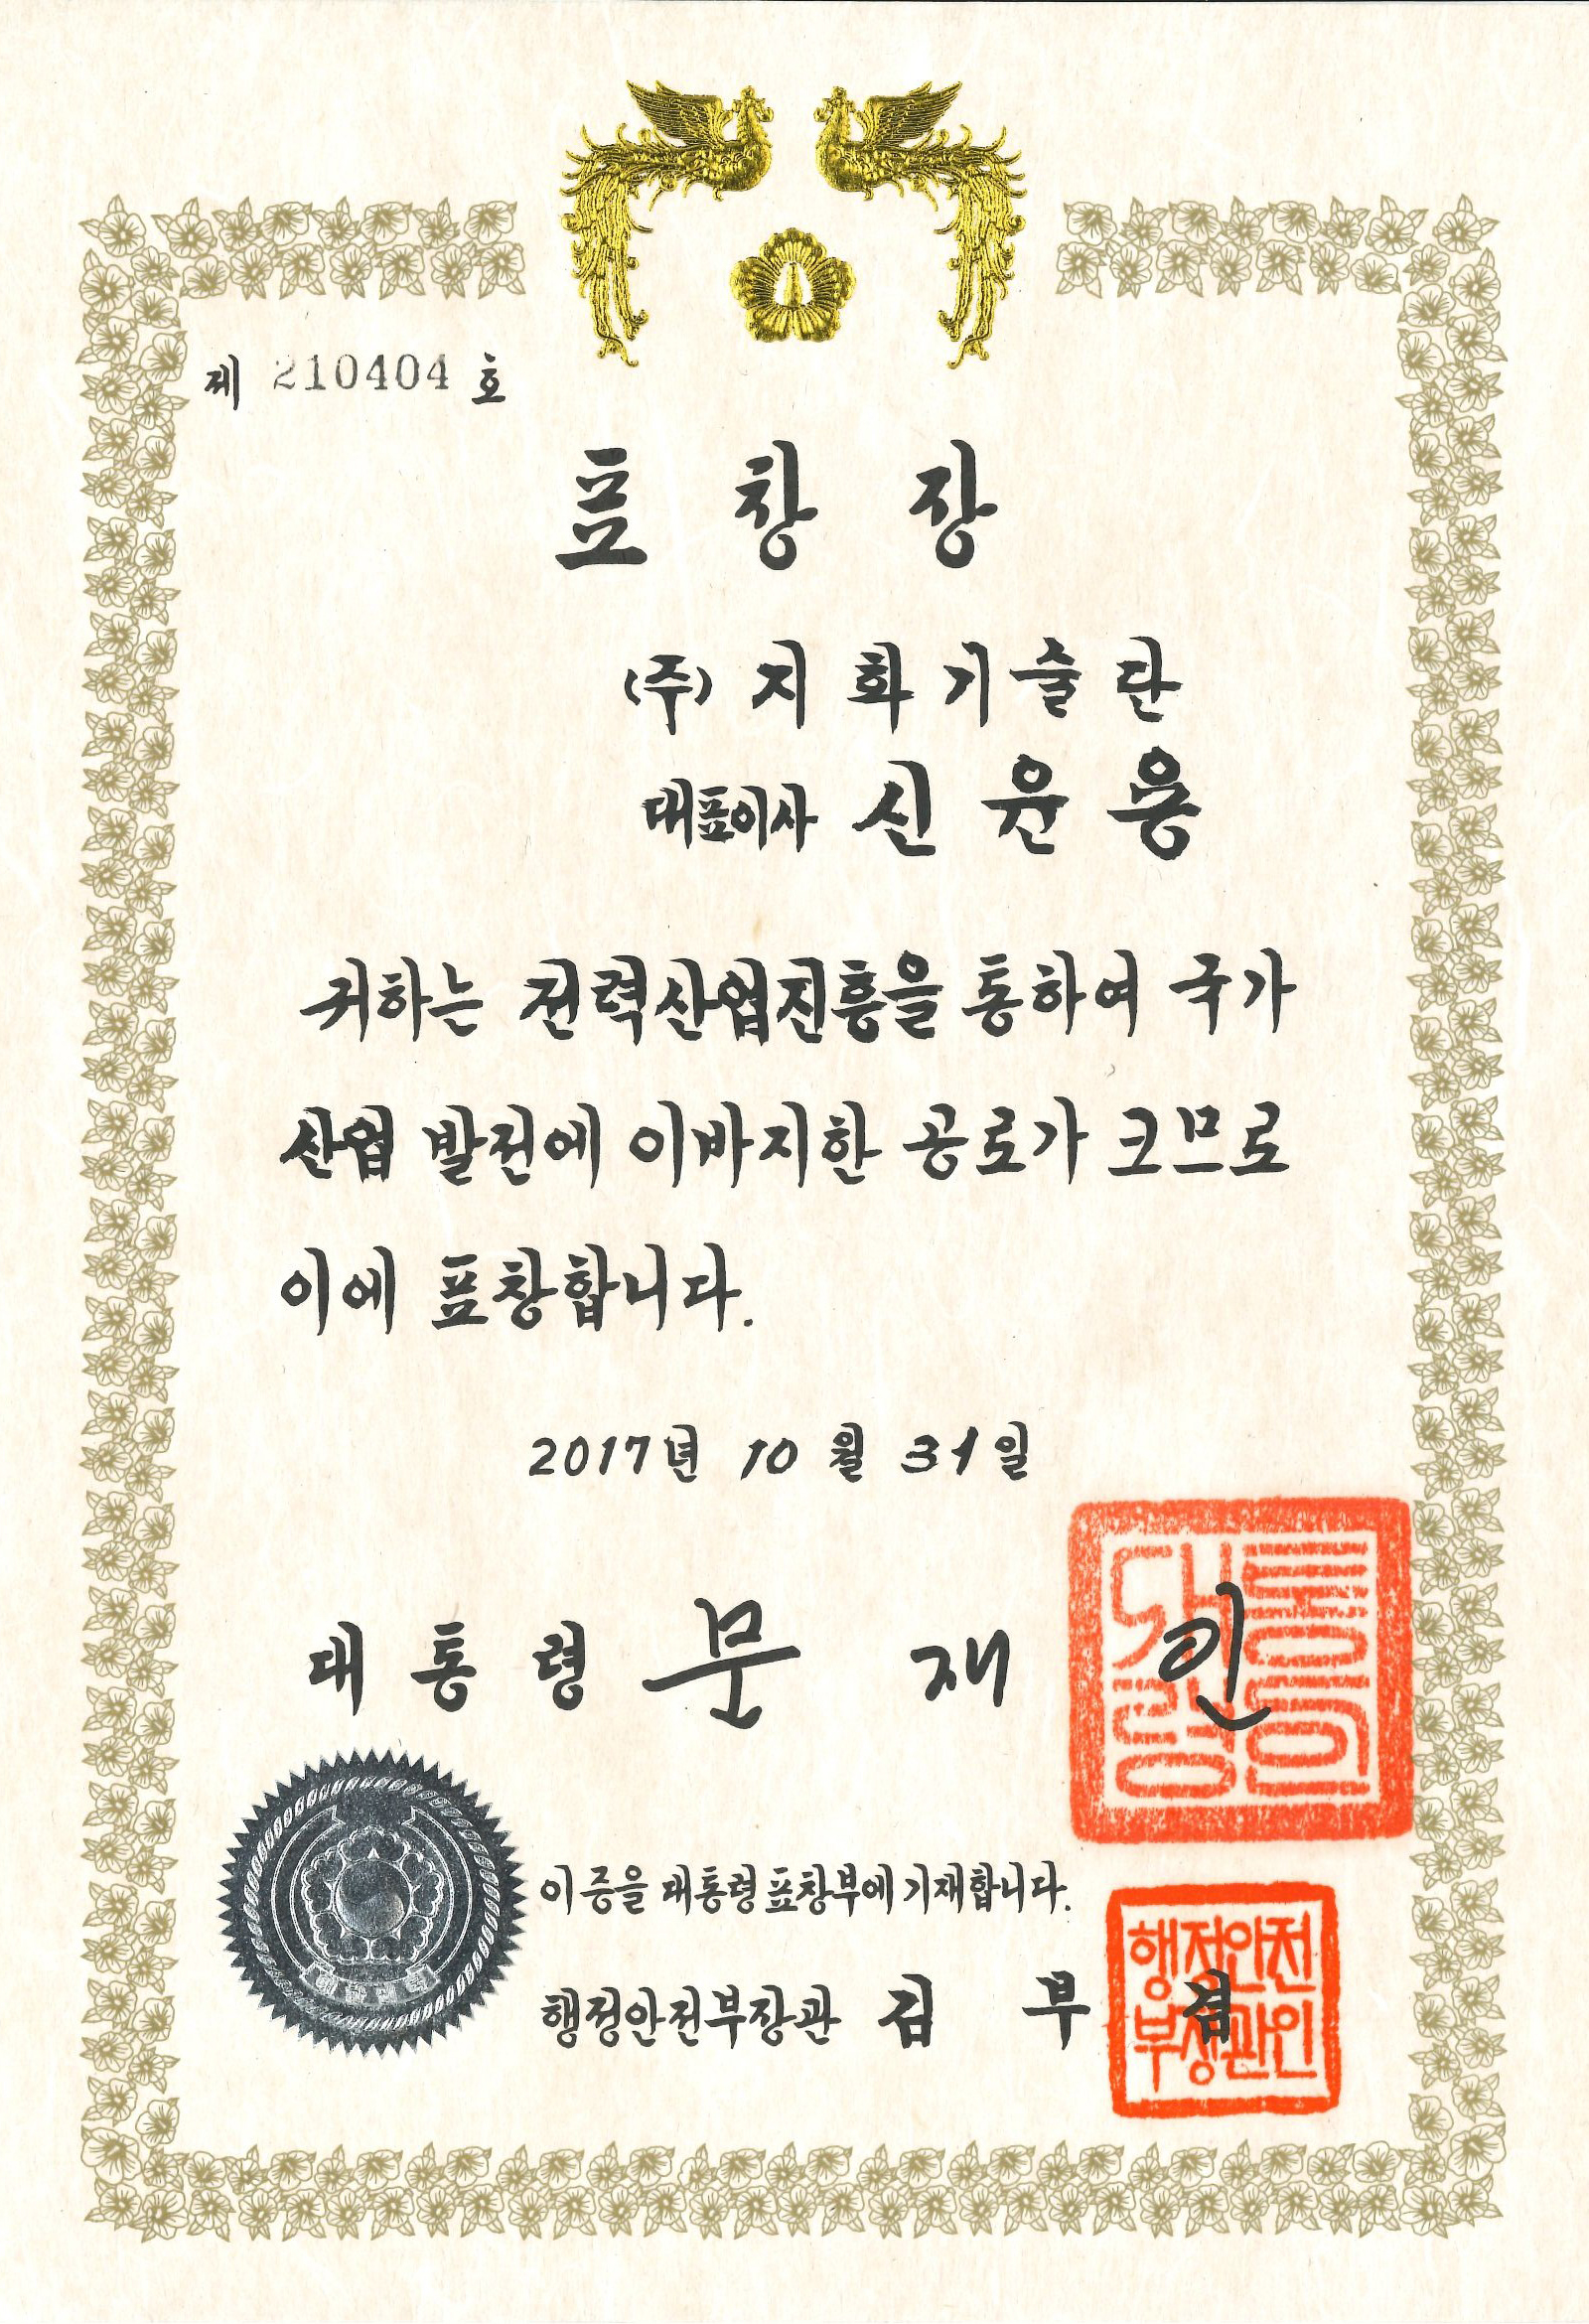 제 210404 호
표 창 장
(주) 지 화 기 술 단
대표이사 신 윤 용
귀하는 전력산업진흥을 통하여 국가
산업 발전에 이바지한 공로가 크므로
이에 표창합니다.
2017년 10 월 31 일
대 통 령 문 재 인
대통령
이 증을 대통령표창부에 기재합니다.
행정안전부장관 김 부 겸
행정안전
부장관인